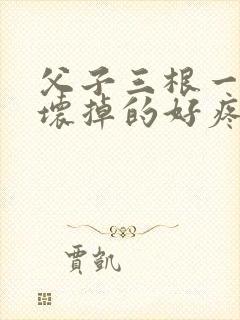 父子三根一
壞掉的好疼
賈凱